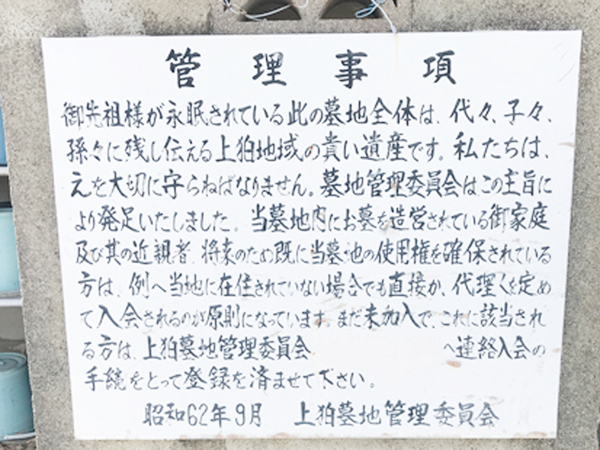 管理事項
御先祖様が永眠されている此の墓地全体は、代々、子々、
孫々に残し伝える上狛地域の貴い遺産です。私たちは、
之を大切に守らねばなりません。墓地管理委員会はこの主旨に
より発足いたしました。当墓地内にお墓を造営されている御家庭
及び其の近親者、将来のため既に当墓地の使用権を確保されている
方は、例へ当地に在住されていない場合でも直接か、代理人を定め
て入会されるのが原則になっています。まだ未加入で、これに該当され
る方は、上狛墓地管理委員会 へ連絡入会の
手続をとって登録を済ませて下さい。
昭和62年9月 上狛墓地管理委員会